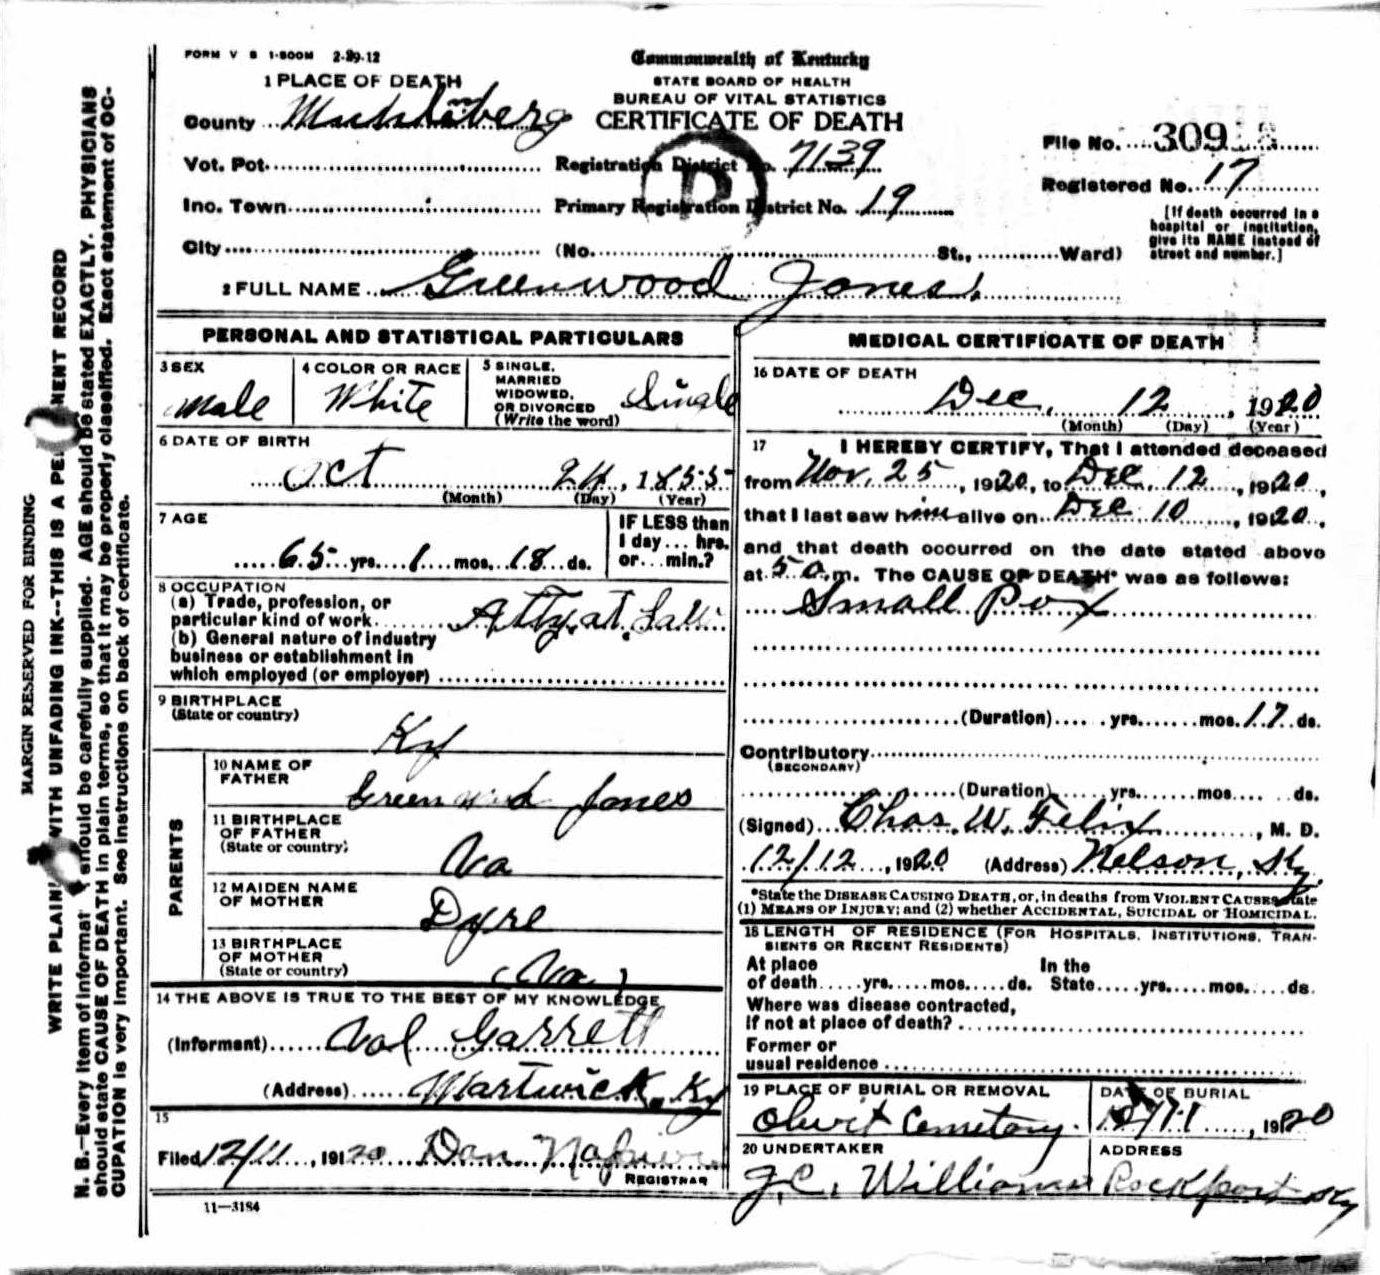 FORM V S 1-500M 2-29-12
Commonwealth of Kentucky
STATE BOARD OF HEALTH
BUREAU OF VITAL STATISTICS
CERTIFICATE OF DEATH
1 PLACE OF DEATH
County Muhlenberg
Vot. Pct.
Inc. Town
City
Registration District No. 7139
Primary Registration District No. 19
(No. St., Ward)
File No. 309
Registered No. 17
[If death occurred in a
hospital or institution,
give its NAME instead of
street and number.]
2 FULL NAME Greenwood Jones.
PERSONAL AND STATISTICAL PARTICULARS
3 SEX
Male
4 COLOR OR RACE
White
5 SINGLE,
MARRIED
WIDOWED,
OR DIVORCED
(Write the word)
Single
6 DATE OF BIRTH
Oct 24, 1855
(Month) (Day) (Year)
7 AGE
65 yrs. 1 mos. 18 ds.
IF LESS than
1 day... hrs.
or...min.?
8 OCCUPATION
(a) Trade, profession, or
particular kind of work Atty. at Law
(b) General nature of industry
business or establishment in
which employed (or employer)
9 BIRTHPLACE
(State or country)
Ky
PARENTS
10 NAME OF
FATHER
Greenwood Jones
11 BIRTHPLACE
OF FATHER
(State or country)
Va
12 MAIDEN NAME
OF MOTHER
Dyre
13 BIRTHPLACE
OF MOTHER
(State or country)
(Va)
14 THE ABOVE IS TRUE TO THE BEST OF MY KNOWLEDGE
(Informant) Val Garrett
(Address) Martwick, Ky
15
Filed 12/11, 1920 Dan
REGISTRAR
11-3184
MEDICAL CERTIFICATE OF DEATH
16 DATE OF DEATH
Dec. 12, 1920
(Month) (Day) (Year)
17 I HEREBY CERTIFY, That I attended deceased
from Nov. 25, 1920, to Dec. 12, 1920,
that I last saw him alive on Dec 10, 1920,
and that death occurred on the date stated above
at 5 a.m. The CAUSE OF DEATH* was as follows:
Small Pox
(Duration) yrs. mos. 17 ds.
Contributory
(SECONDARY)
(Duration) yrs. mos. ds.
(Signed) Chas. W. Felix, M. D.
12/12, 1920 (Address) Nelson, Ky.
*State the DISEASE CAUSING DEATH, or, in deaths from VIOLENT CAUSES state
(1) MEANS OF INJURY; and (2) whether ACCIDENTAL, SUICIDAL or HOMICIDAL.
18 LENGTH OF RESIDENCE (FOR HOSPITALS, INSTITUTIONS, TRAN-
SIENTS OR RECENT RESIDENTS)
At place In the
of death yrs. mos. ds. State yrs. mos. ds.
Where was disease contracted,
if not at place of death?
Former or
usual residence
19 PLACE OF BURIAL OR REMOVAL
Cemetery.
DATE OF BURIAL
1920
20 UNDERTAKER
J. C. Williams
ADDRESS
Rockport Ky
MARGIN RESERVED FOR BINDING
WRITE PLAINLY WITH UNFADING INK--THIS IS A PERMANENT RECORD
N. B.—Every item of information should be carefully supplied. AGE should be stated EXACTLY. PHYSICIANS
should state CAUSE OF DEATH in plain terms, so that it may be properly classified. Exact statement of OC-
CUPATION is very important. See instructions on back of certificate.